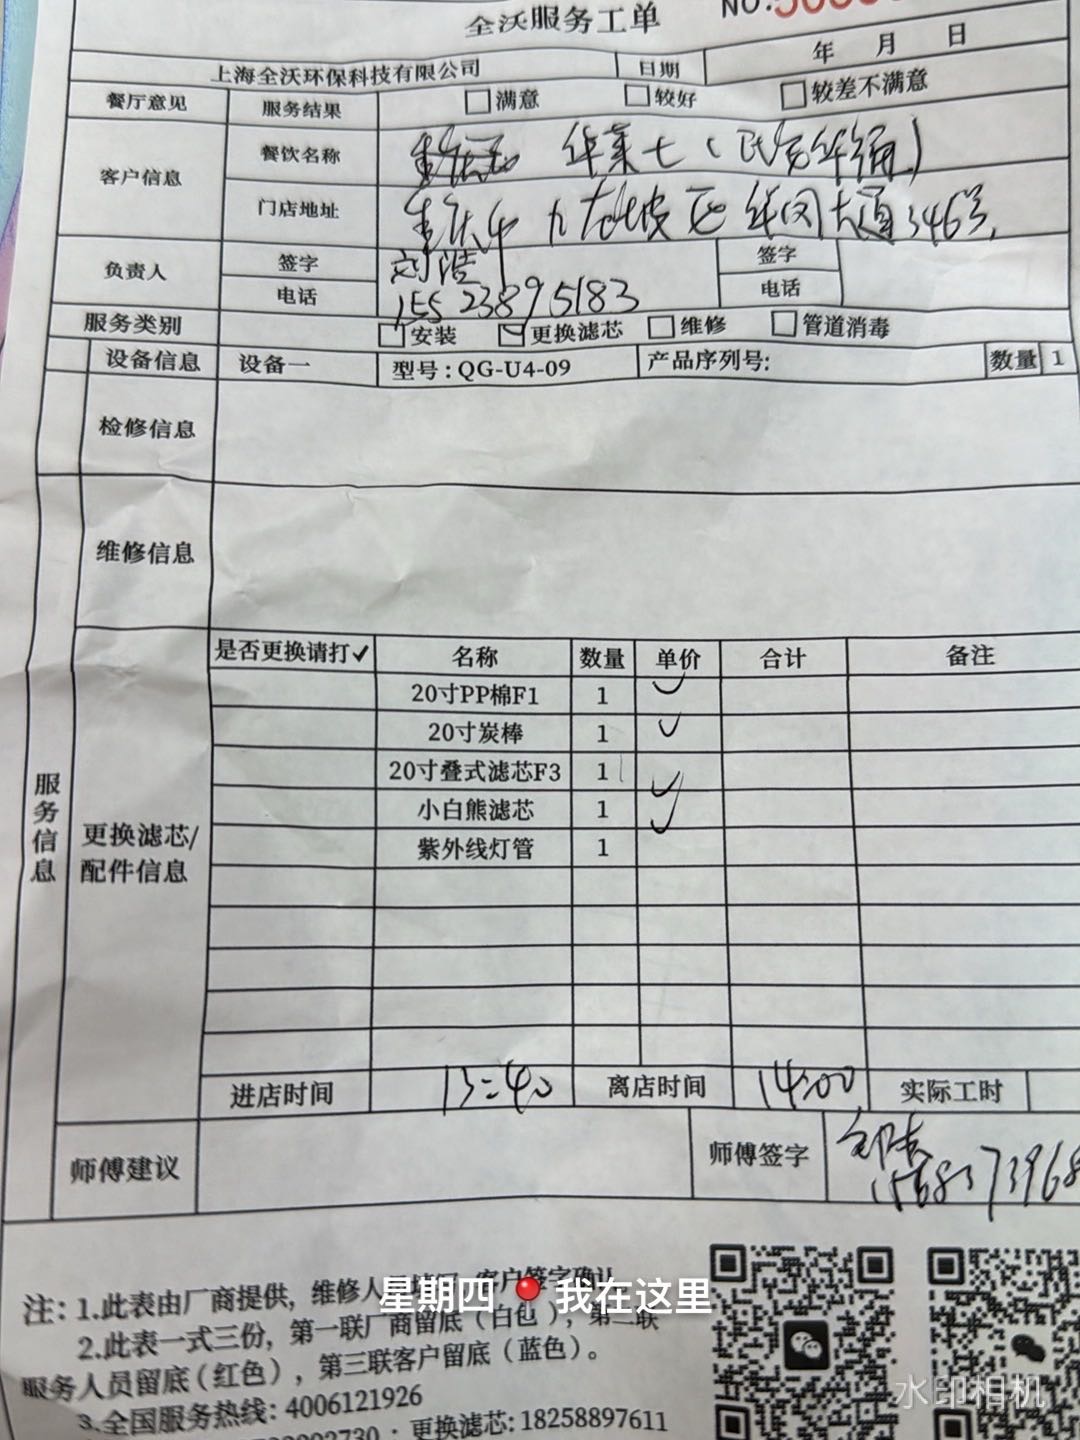 全沃服务工单 NO.
上海全沃环保科技有限公司 日期 年 月 日
餐厅意见 服务结果 □满意 □较好 □较差不满意
客户信息 餐饮名称 华莱士(
门店地址 重庆市九龙坡区华冈大道346号
负责人 签字 刘浩 签字
电话 15523895183 电话
服务类别 □安装 ☑更换滤芯 □维修 □管道消毒
设备信息 设备一 型号:QG-U4-09 产品序列号: 数量 1
检修信息
维修信息
服务信息
更换滤芯/
配件信息
是否更换请打✓ 名称 数量 单价 合计 备注
20寸PP棉F1 1 ✓
20寸炭棒 1 ✓
20寸叠式滤芯F3 1 ✓
小白熊滤芯 1 ✓
紫外线灯管 1
进店时间 13:40 离店时间 14:00 实际工时
师傅建议 师傅签字
注: 1.此表由厂商提供, 维修人 客户签字确认
2.此表一式三份, 第一联厂商留底(白色), 第二联
服务人员留底(红色), 第三联客户留底(蓝色)。
3.全国服务热线: 4006121926
更换滤芯: 18258897611
星期四 📍我在这里
水印相机